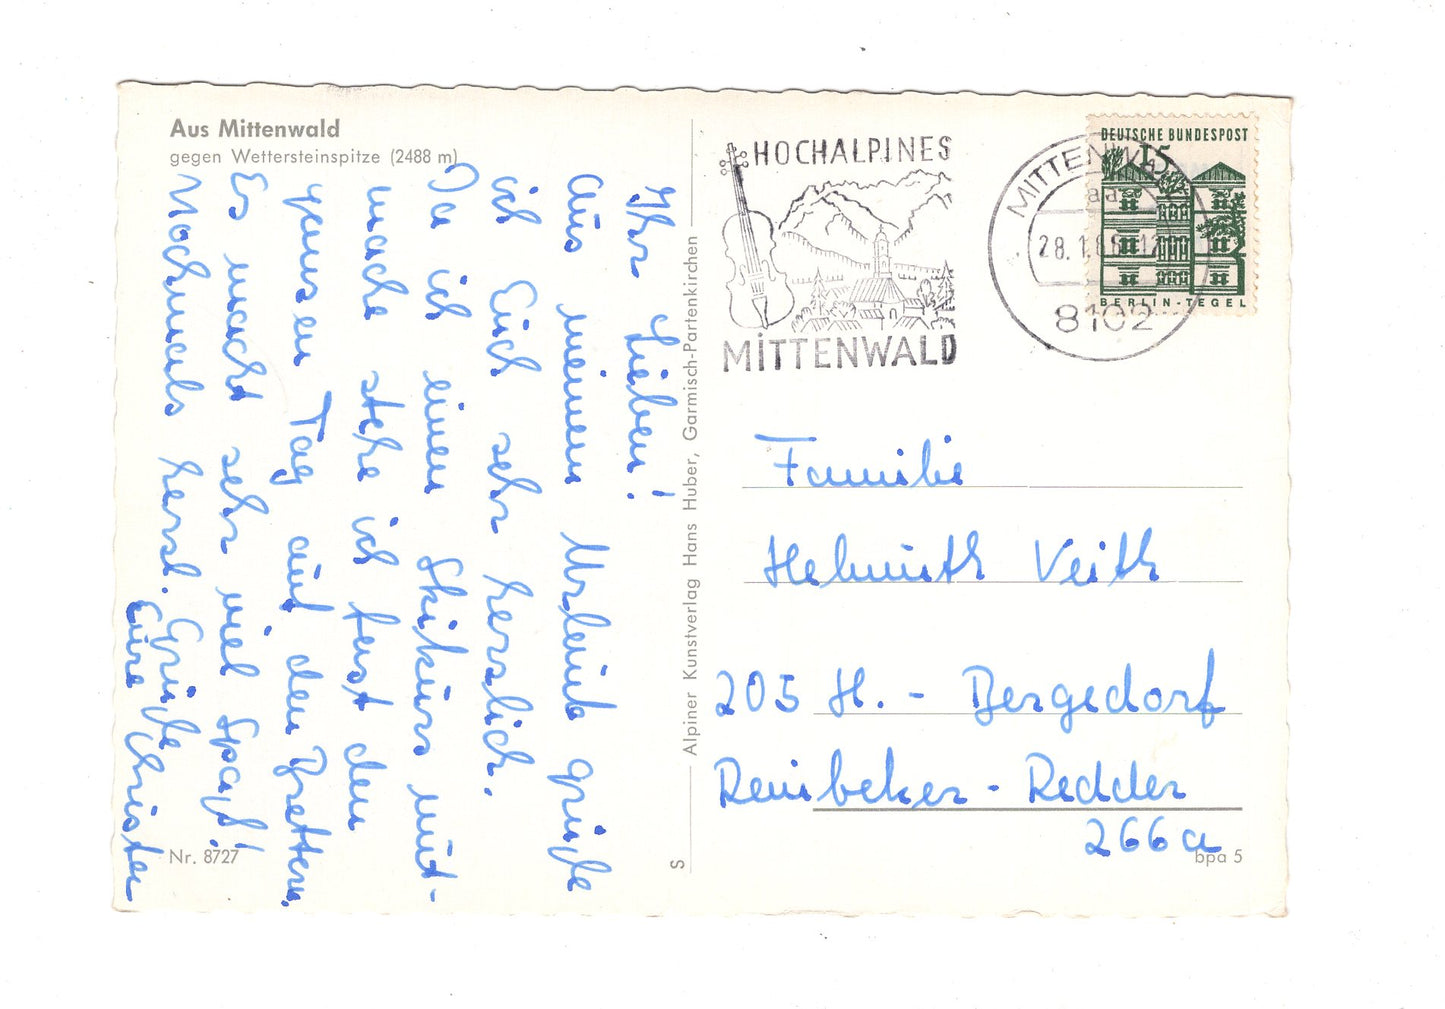 Aus Mittenwald
gegen Wettersteinspitze (2488 m)
Ihr Lieben!
Aus meinem Urlaub grüße
ich Euch sehr herzlich.
Da ich einen Skikurs mit-
mache stehe ich fast den
ganzen Tag auf den Brettern.
Es macht sehr viel Spaß!
Nochmals herzl. Grüße
Eure Christen
Nr. 8727
Alpiner Kunstverlag Hans Huber, Garmisch-Partenkirchen
S
HOCHALPINES
MITTENWALD
MITTENWALD
aa
28.1.
8102
DEUTSCHE BUNDESPOST
15
BERLIN-TEGEL
Familie
Helmuth Veith
205 H. - Bergedorf
Reinbeker - Redder
266a
bpa 5